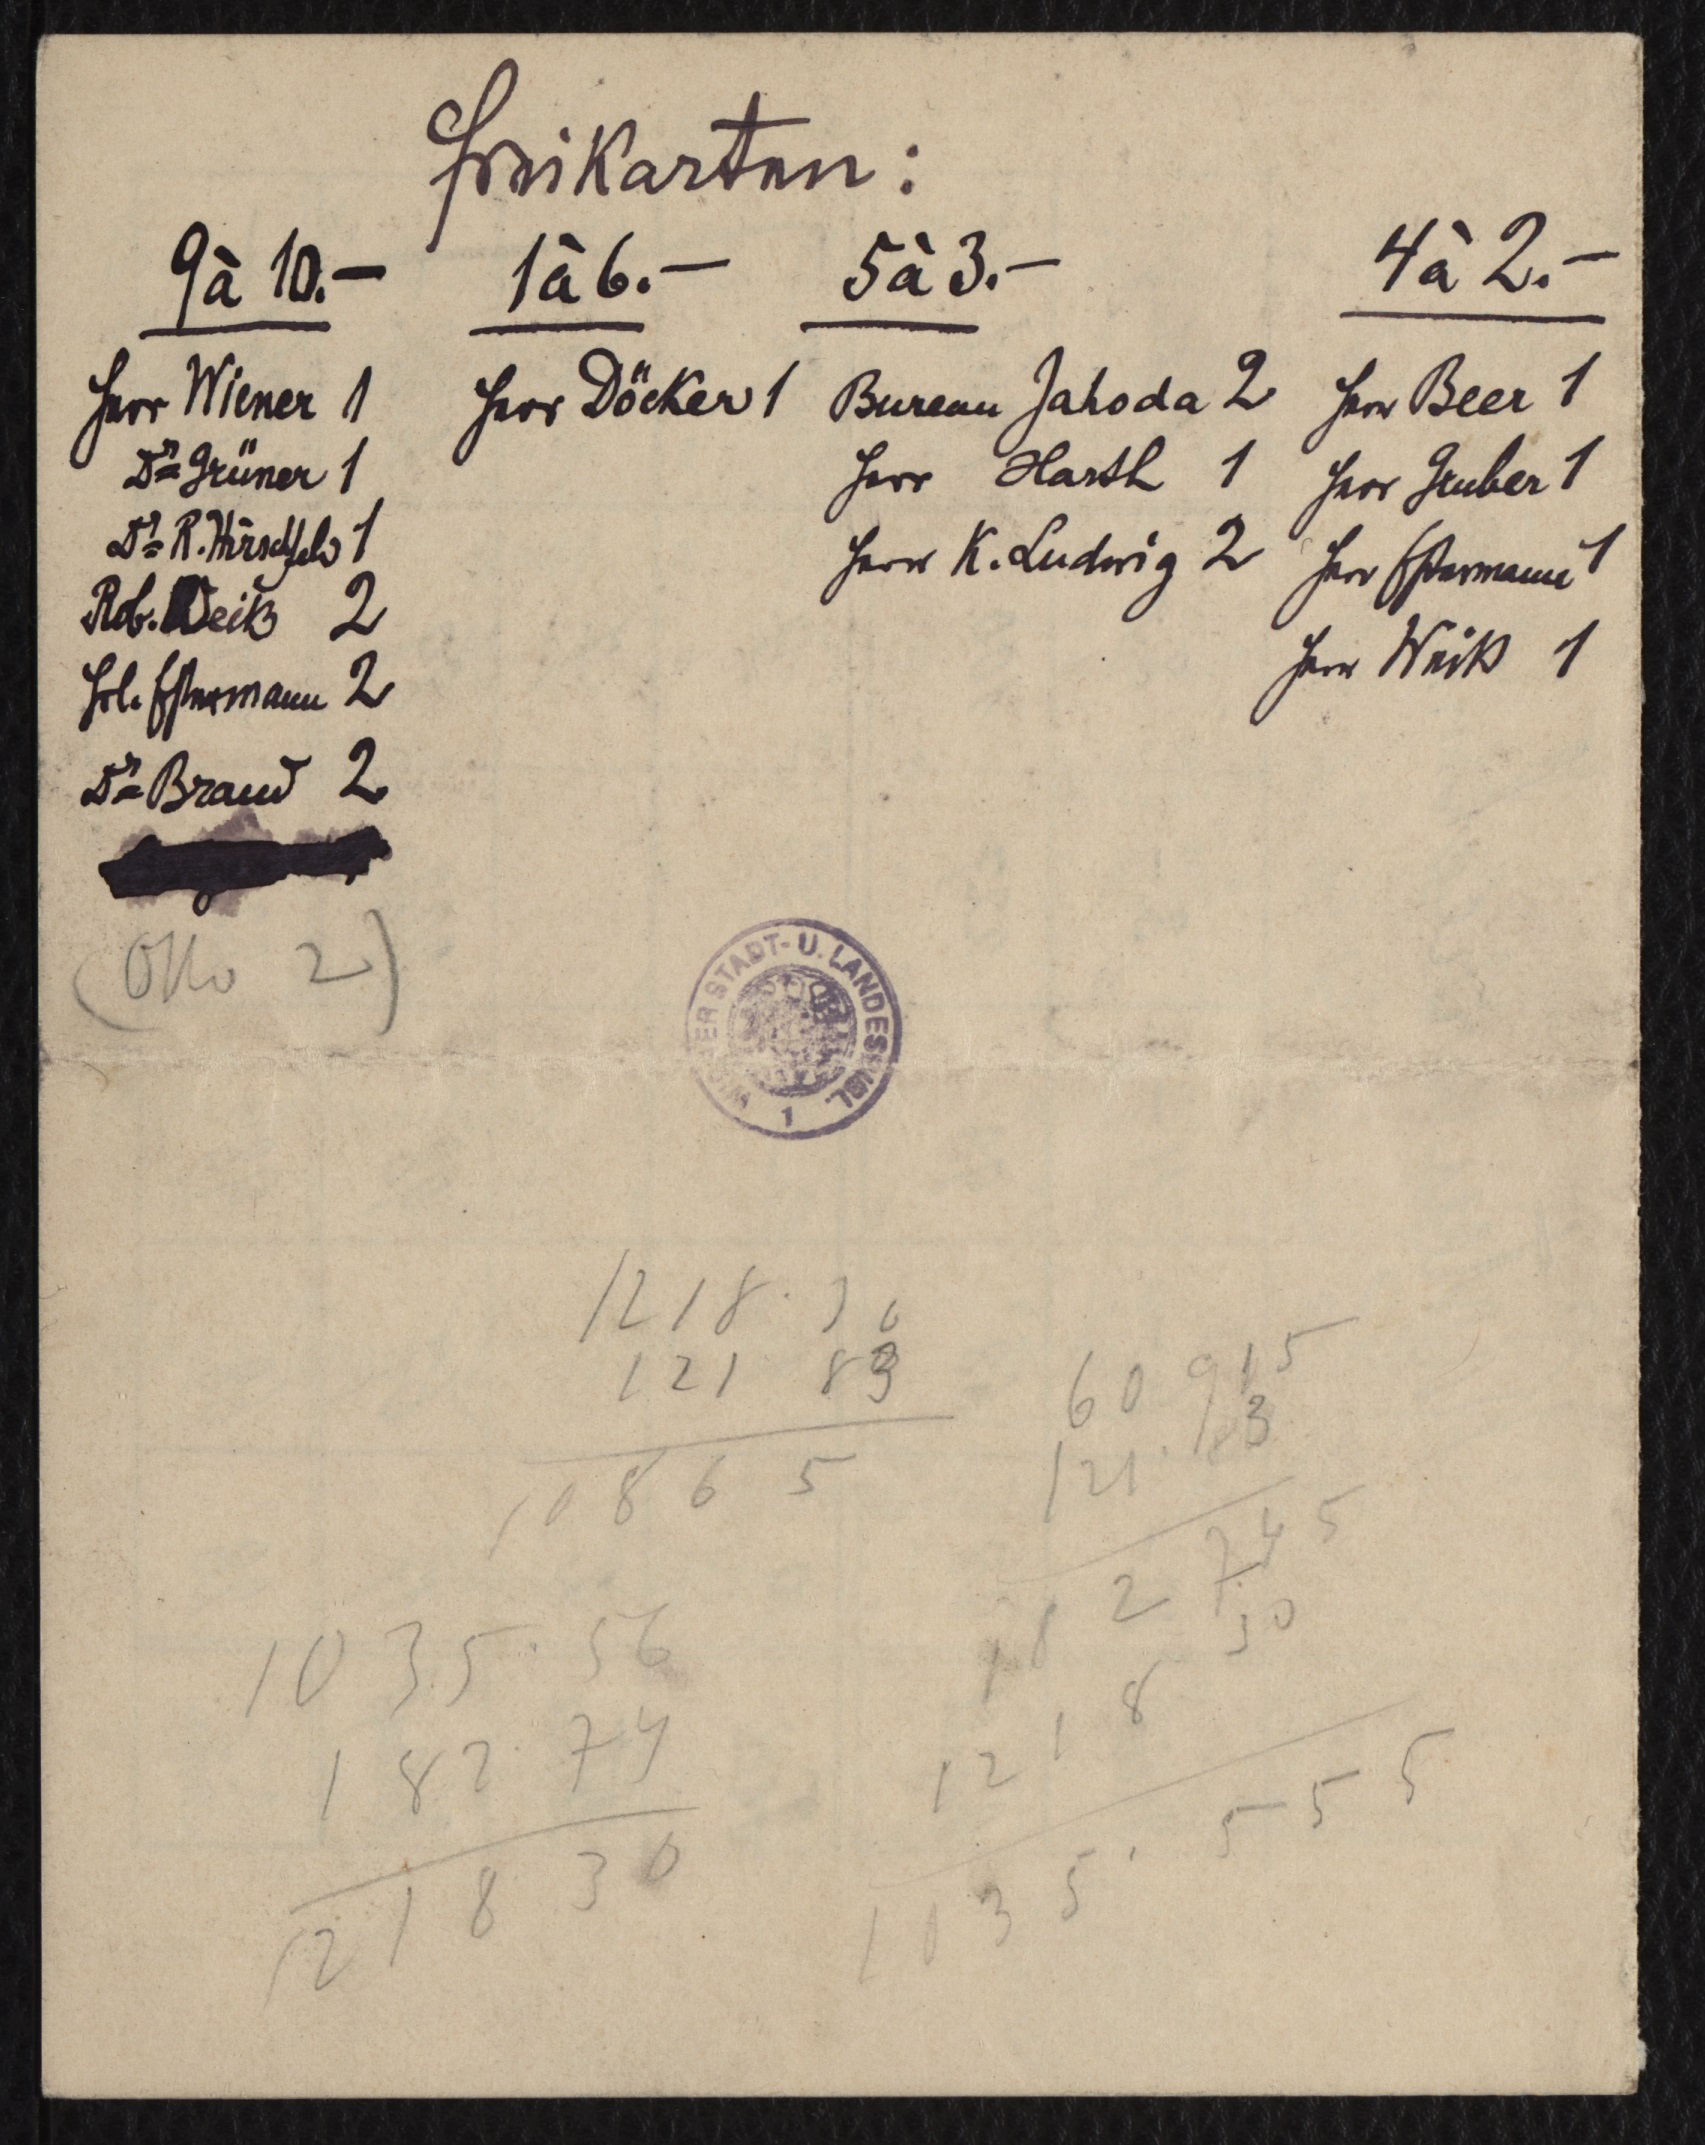 Freikarten:
9 à 10.–
Herr Wiener 1
Dr Grüner 1
Dr R. Hirschfeld 1
Rob. Weiß 2
Frl. Estermann 2
Dr Brand 2
(Otto 2)
1 à 6.–
Herr Döcker 1
5 à 3.–
Bureau Jahoda 2
Herr Harth 1
Herr K. Ludwig 2
4 à 2.–
Herr Beer 1
Herr Gruber 1
Herr Estermann 1
Herr Weiß 1
WIENER STADT- U. LANDESBIBL.
1
1218.30
121 83
10865
60 915
121.83
182 745
1218 30
1035.555
1035.56
182.74
121830